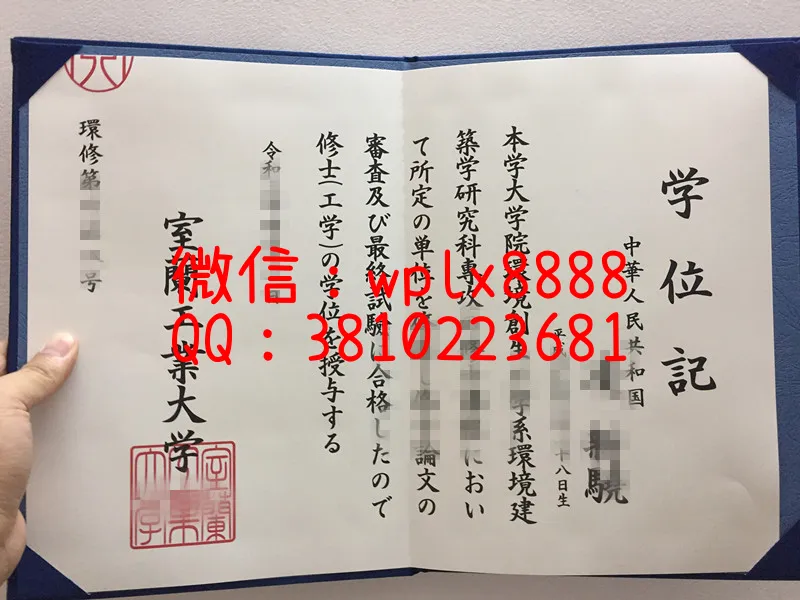 学位記
中華人民共和国
平成 十八日生
驍
本学大学院環境創生 学系環境建
築学研究科専攻 におい
て所定の単位を 論文の
審査及び最終試験に合格したので
修士(工学)の学位を授与する
令和
室蘭工業大学
環修第 号
微信：wplx8888
QQ：3810223681